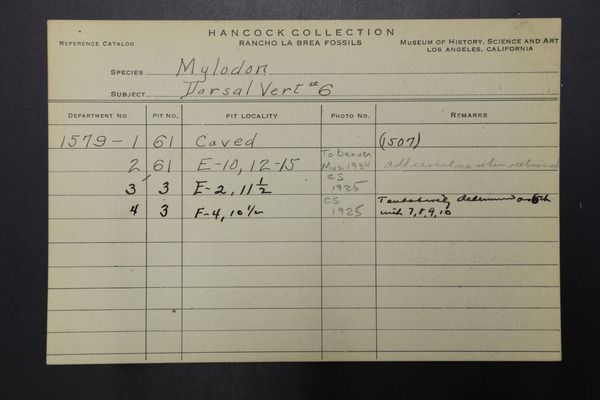 HANCOCK COLLECTION
REFERENCE CATALOG RANCHO LA BREA FOSSILS MUSEUM OF HISTORY, SCIENCE AND ART
LOS ANGELES, CALIFORNIA
SPECIES Mylodon
SUBJECT Dorsal Vert #6
DEPARTMENT NO. PIT NO. PIT LOCALITY PHOTO NO. REMARKS
1579-1 61 Caved (1507)
2 61 E-10, 12-15 To Denver Mus 1934 when returned
3 3 E-2, 11 1/2 CS 1925
4 3 F-4, 10 1/2 CS 1925 Tentatively determined as 6th
with 7, 8, 9, 10